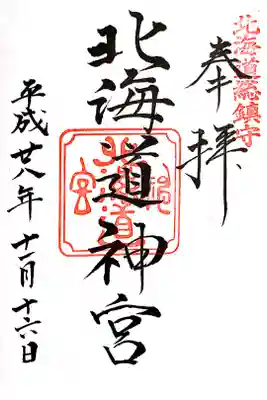 北海道総鎮守
奉拝
北海道神宮
平成廿八年 十一月十六日